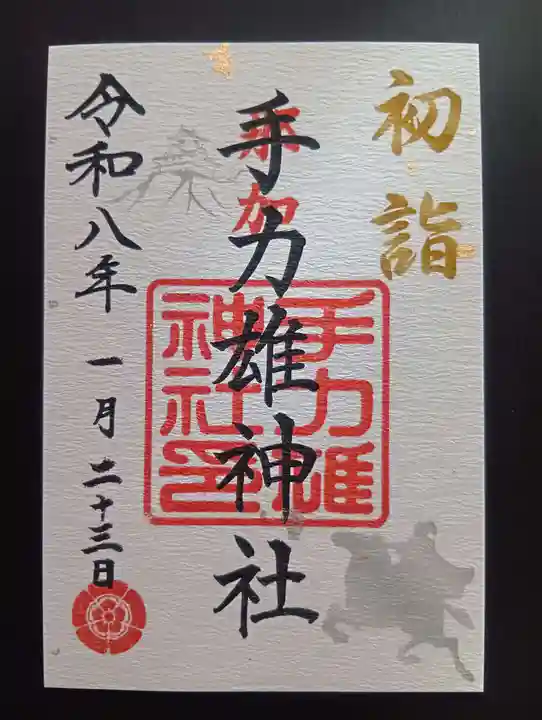 初詣
手力雄神社
那加
手力雄
神社印
令和八年 一月 二十三日